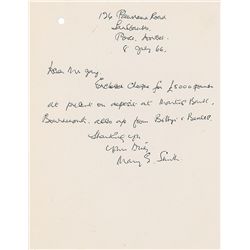 126 Panorama Road
Sandbanks
Poole, Dorset.
8 July 66.
Dear Mr Gray,
Enclosed cheque for £5000
at present on deposit at Martins Bank,
Bournemouth. also up from Billys &
Thanking you,
Yours truly,
Mary E. Smith